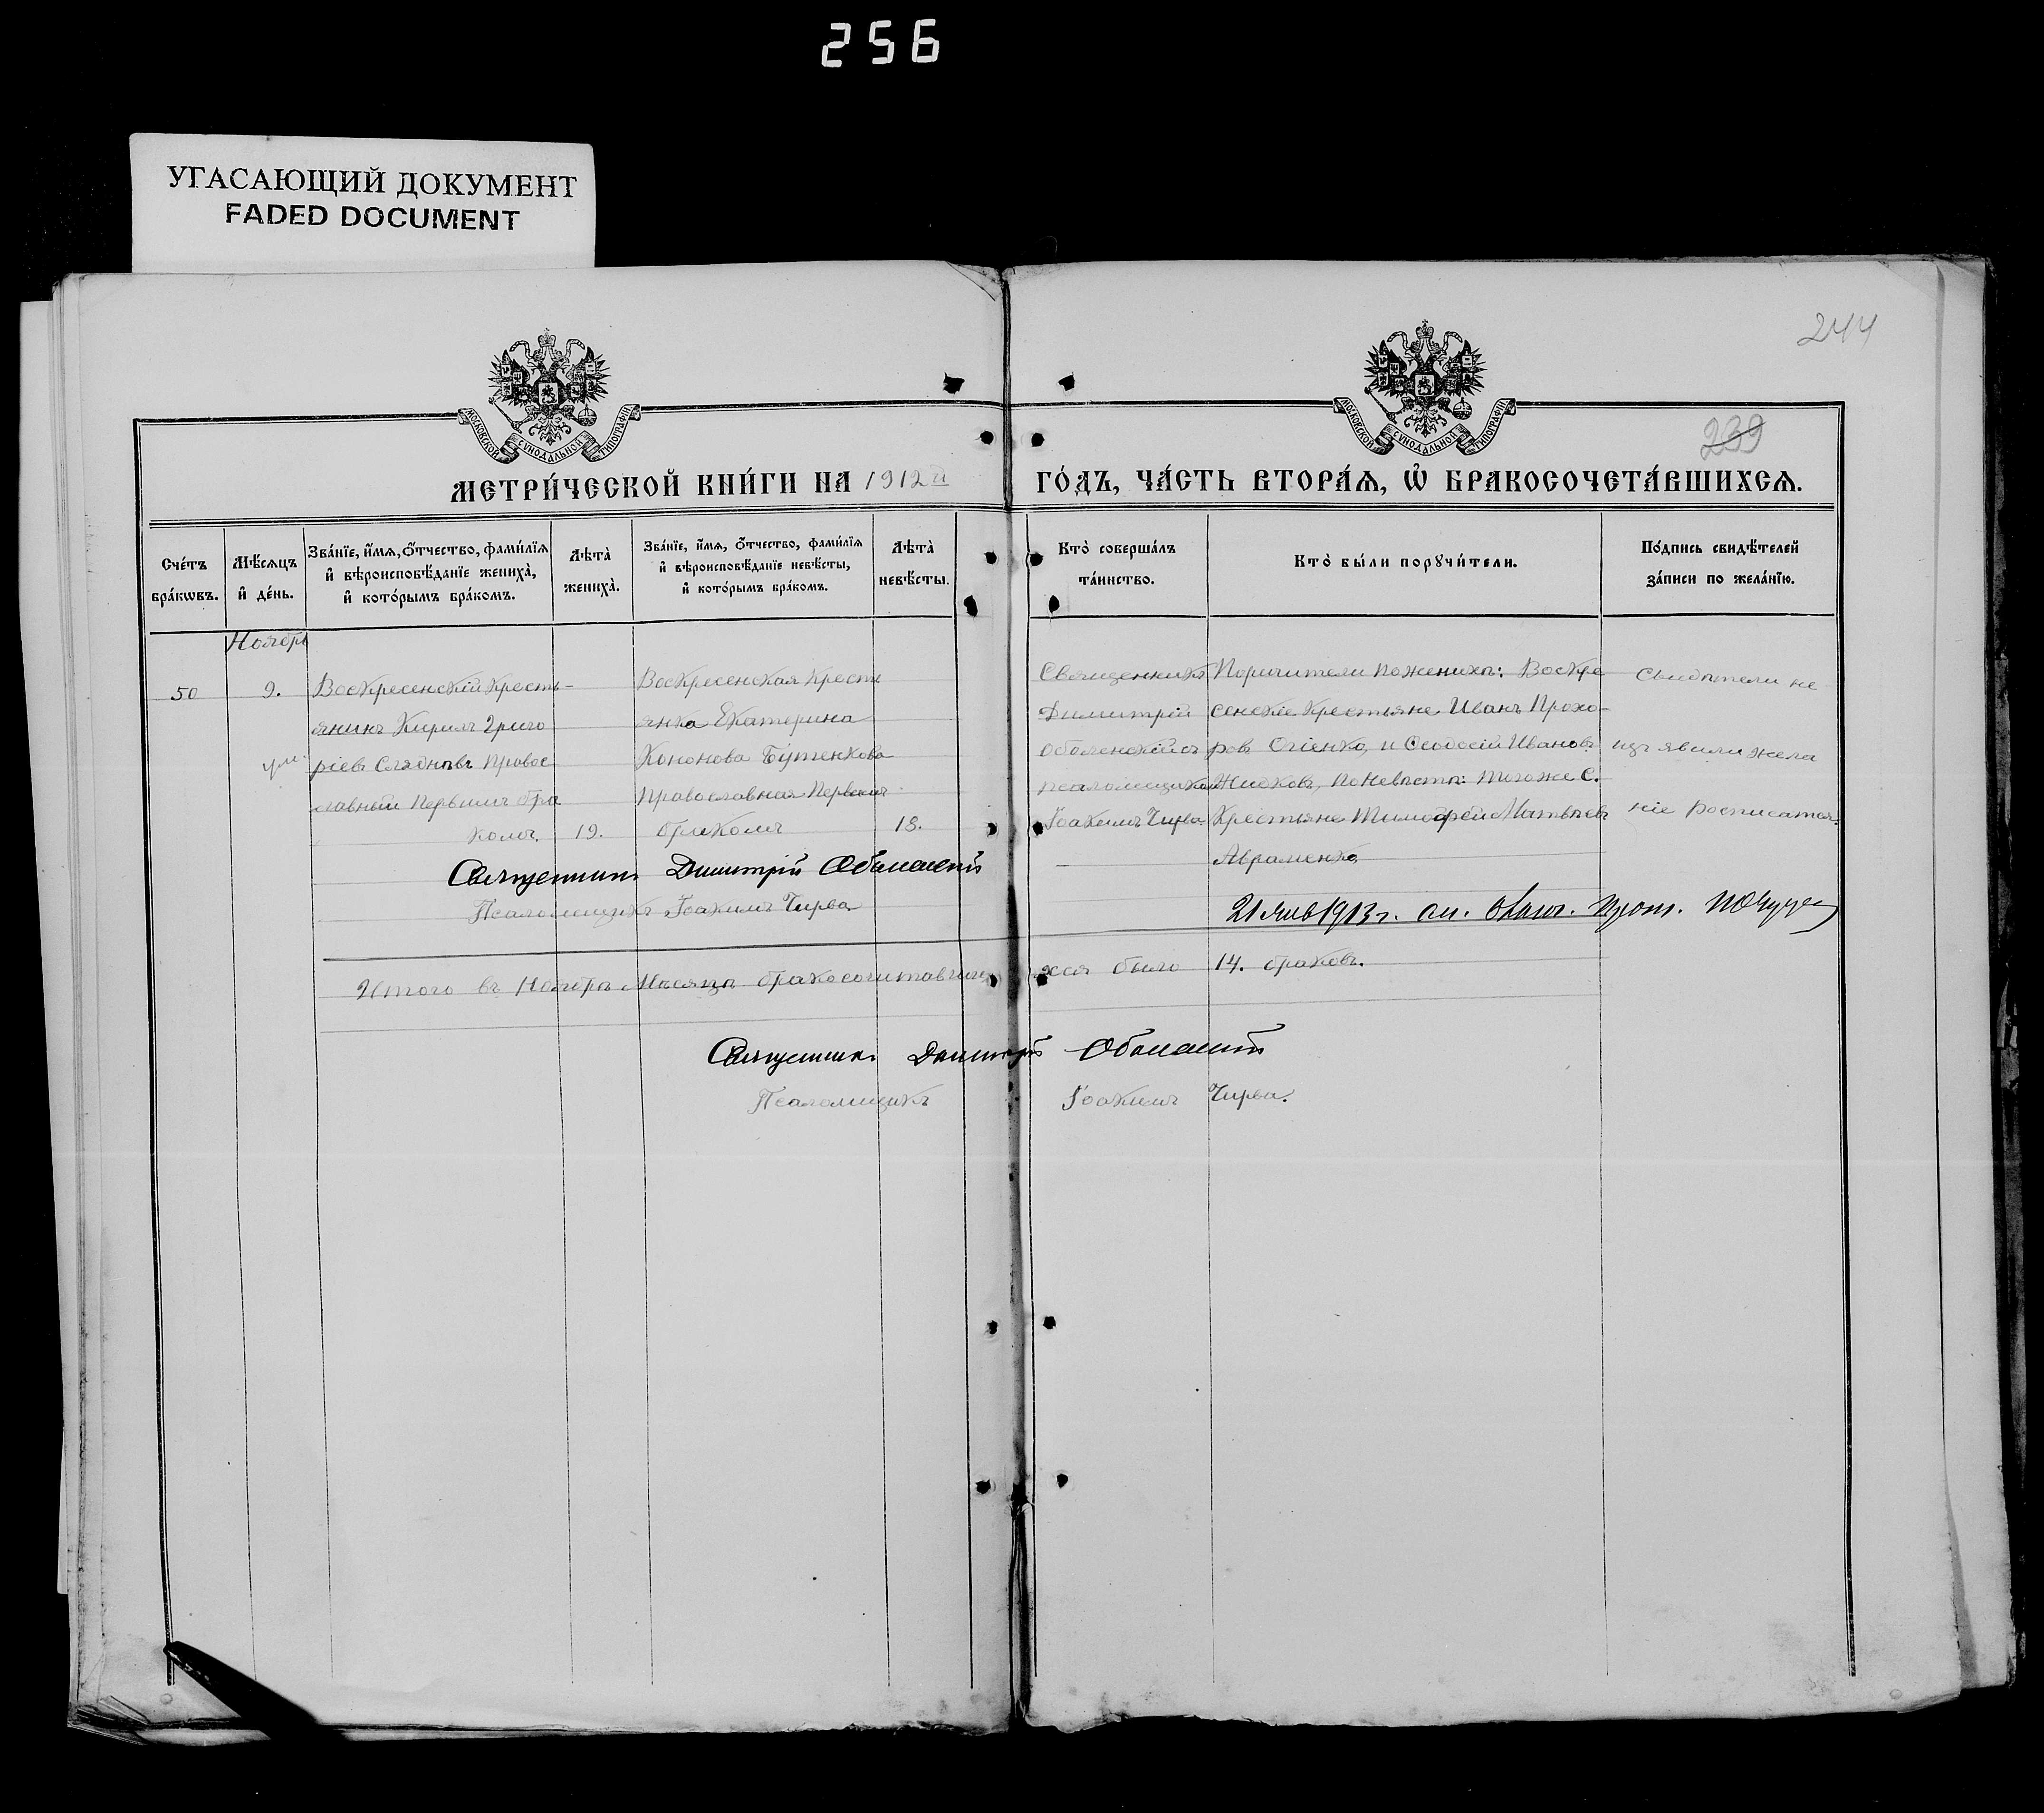 256
УГАСАЮЩИЙ ДОКУМЕНТ
FADED DOCUMENT
244
239
МОСКОВСКОЙ СѴНОДАЛЬНОЙ ТИПОГРАФІИ
МОСКОВСКОЙ СѴНОДАЛЬНОЙ ТИПОГРАФІИ
МЕТРИ́ЧЕСКОЙ КНИ́ГИ НА 1912й ГО́ДЪ, ЧА́СТЬ ВТОРА́Ѧ, Ѡ҆ БРАКОСОЧЕТА́ВШИХСѦ.
Сче́тъ бра́кѡвъ.
Мѣ́сѧцъ и҆ де́нь.
Зва́нїе, и҆́мѧ, ѻ҆́тчество, фами́лїѧ и҆ вѣроисповѣ́данїе жениха̀, и҆ кото́рымъ бра́комъ.
Лѣта̀ жениха̀.
Зва́нїе, и҆́мѧ, ѻ҆́тчество, фами́лїѧ и҆ вѣроисповѣ́данїе невѣ́сты, и҆ кото́рымъ бра́комъ.
Лѣта̀ невѣ́сты.
Кто̀ соверша́лъ та́инство.
Кто̀ бы́ли порꙋчи́тели.
По́дпись свидѣ́телей за́писи по жела́нїю.
Ноябрь
50
9.
Воскресенскій Кресть-
янинъ Кирилъ Григо
ріевъ Слядневъ Правос
лавный Первымъ бра
комъ.
19.
Воскресенская Кресть
янка Екатерина
Кононова Бутенкова
Православная Первымъ
бракомъ
18.
Священникъ
Димитрій
Оболенскій съ
псаломщиком
Іоакимъ Чирва.
Поручители по женихѣ: Воскре
сенскіе Крестьяне Иванъ Прохо-
ров Огіенко, и Ѳеодосій Ивановъ
Жидковъ, по Невѣстѣ: того же С.
Крестьяне Тимофей Матвѣевъ
Авраменко.
Свидѣтели не
изъявили жела
ніе росписатся.
Священникъ Димитрій Оболенскій
Псаломщикъ Іоакимъ Чирва
21 янв 1913 г.
Итого въ Ноябрѣ Мѣсяцѣ бракосочитавших хся было 14. браковъ.
Священникъ Димитрій Оболенскій
Псаломщикъ Іоакимъ Чирва.